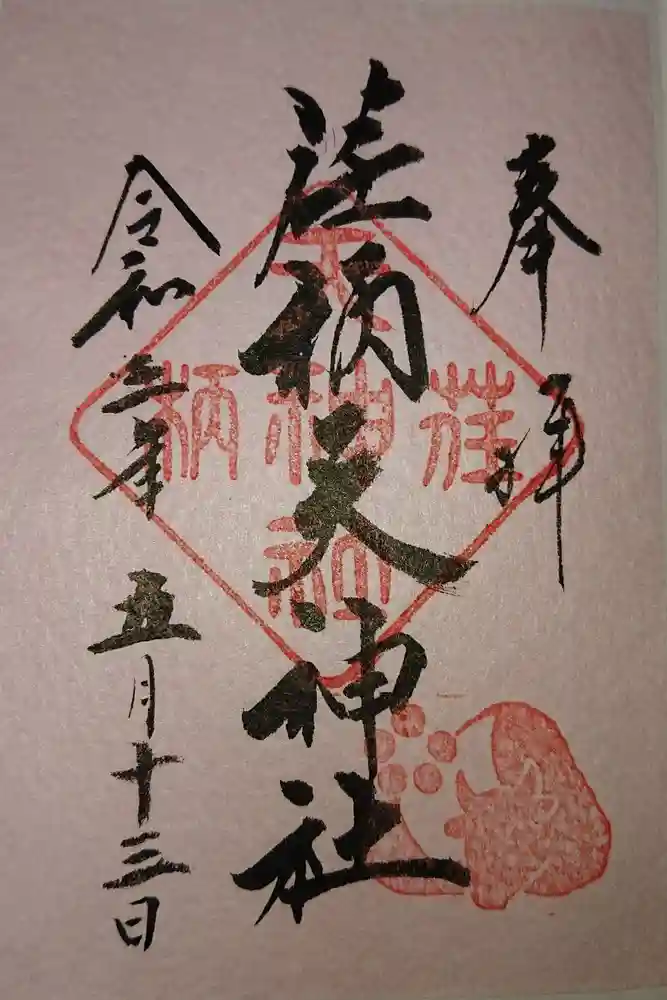 奉拝
荏柄天神社
令和三年五月十三日
荏柄天神社